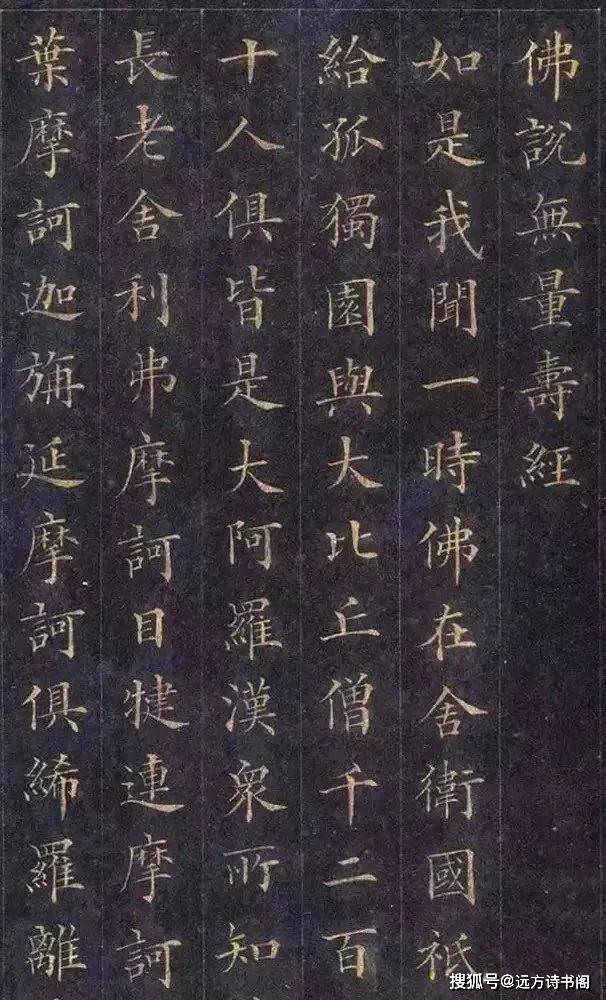 佛說無量壽經
如是我聞一時佛在舍衛國祇
給孤獨園與大比丘僧千二百
十人俱皆是大阿羅漢眾所知
長老舍利弗摩訶目犍連摩訶
葉摩訶迦旃延摩訶俱絺羅離
搜狐号@远方诗书阁